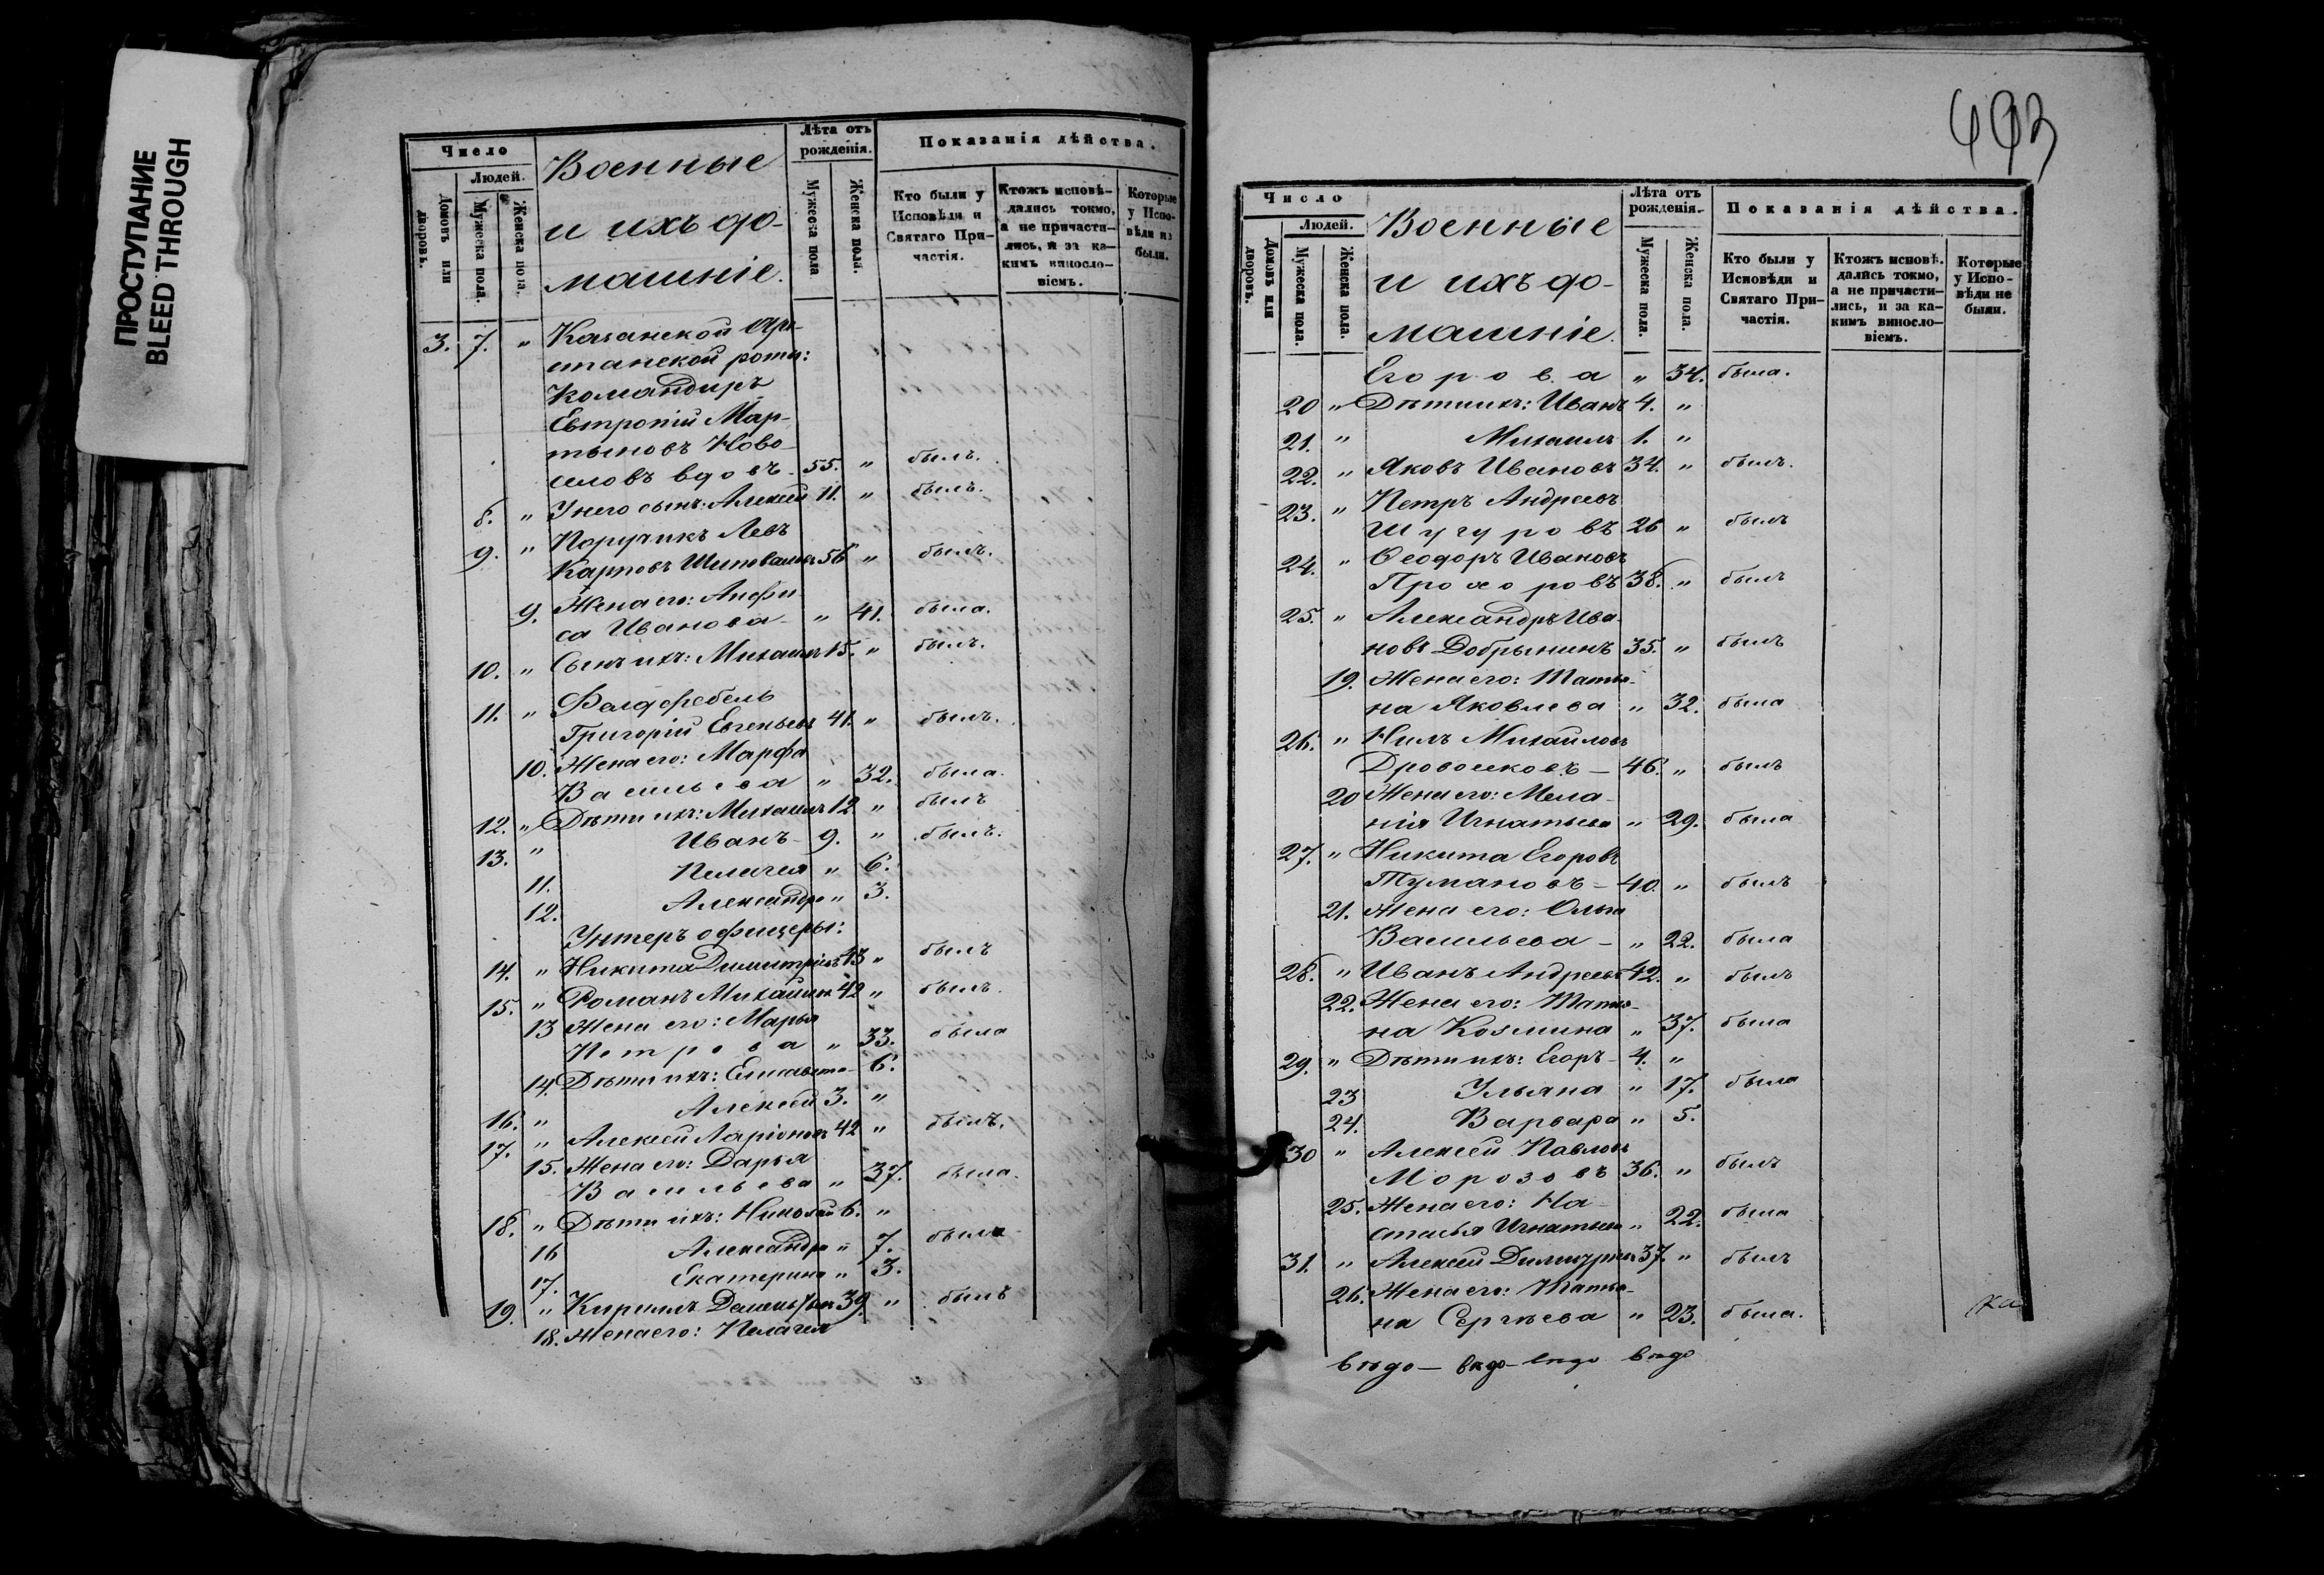 ПРОСТУПАНИЕ
BLEED THROUGH
Число
Людей.
Домовъ или дворовъ.
Мужеска пола.
Женска пола.
Военные
и ихъ до-
машніе.
Лѣта отъ рожденія.
Мужеска пола
Женска пола.
Показанія дѣйства.
Кто были у Исповѣди и Святаго При-частія.
Ктожъ исповѣ-дались токмо, а не причасти-лись, и за ка-кимъ винословіемъ.
Которые у Испо-вѣди не были.
3. 7. " Казанской Аре-
станской роты:
Командиръ
Евтропій Мар-
тыновъ Ново-
селовъ вдовъ 55. " былъ.
8. " У него сынъ: Алексей 11. " былъ.
9. " Поручикъ Левъ
Карповъ 56 " былъ.
9. Жена его: Анфи-
са Иванова " 41. была.
10. " Сынъ ихъ: Михаилъ 15. " былъ.
11. " Фелдфебель
Григорій Евгеньевъ 41. " былъ.
10. Жена его: Марфа
Васильева " 32. была.
12. " Дѣти ихъ: Михаилъ 12 " былъ
13. " Иванъ 9. " былъ.
11. Пелагея " 6.
12. Александра " 3.
Унтеръ офицеры:
14. " Никита Димитріевъ 43 " былъ
15. " Романъ Михайловъ 42 " былъ.
13 Жена его: Марья
Петрова " 33. была
14. Дѣти ихъ: Елисавета 6.
16. " Алексей 3. "
17. " Алексей Ларіоновъ 42 " былъ.
15. Жена его: Дарья
Васильева " 37. была.
18. " Дѣти ихъ: Николай 6. "
16 Александра " 7. была
17. Екатерина " 3.
19. " Кириллъ 39 " былъ
18. Жена его: Пелагея
493
Число
Людей.
Домовъ или дворовъ.
Мужеска пола.
Женска пола.
Военные
и ихъ до-
машніе.
Лѣта отъ рожденія.
Мужеска пола.
Женска пола.
Показанія дѣйства.
Кто были у Исповѣди и Святаго При-частія.
Ктожъ исповѣ-дались токмо, а не причасти-лись, и за ка-кимъ винословіемъ.
Которые у Испо-вѣди не были.
Егорова " 34. была.
20 " Дѣти ихъ: Иванъ 4. "
21. " Михаилъ 1. "
22. " Яковъ Ивановъ 34. " былъ.
23. " Петръ Андреевъ
Шугуровъ 26 " былъ
24. " Ѳеодоръ Ивановъ
Прохоровъ 38. " былъ
25. " Александръ Ива-
новъ Добрынинъ 35. " былъ
19. Жена его: Татья-
на Яковлева " 32. была
26. " Нилъ Михайловъ
46. " былъ
20 Жена его: Мела-
нія Игнатьева " 29. была
27. " Никита Егоровъ
Тумановъ 40. " былъ
21. Жена его: Ольга
Васильева " 22. была
28. " Иванъ Андреевъ 42. " былъ
22. Жена его: Татья-
на Козмина " 37. была
29. " Дѣти ихъ: Егоръ 4. "
23 Ульяна " 17. была
24. Варвара " 5.
30 " Алексей Павловъ
Морозовъ 36. " былъ
25. Жена его: На-
стасья Игнатьева " 22. была
31. " Алексей Димитріевъ 37. " былъ
26. Жена его: Татья-
на Сергѣева " 23. была.